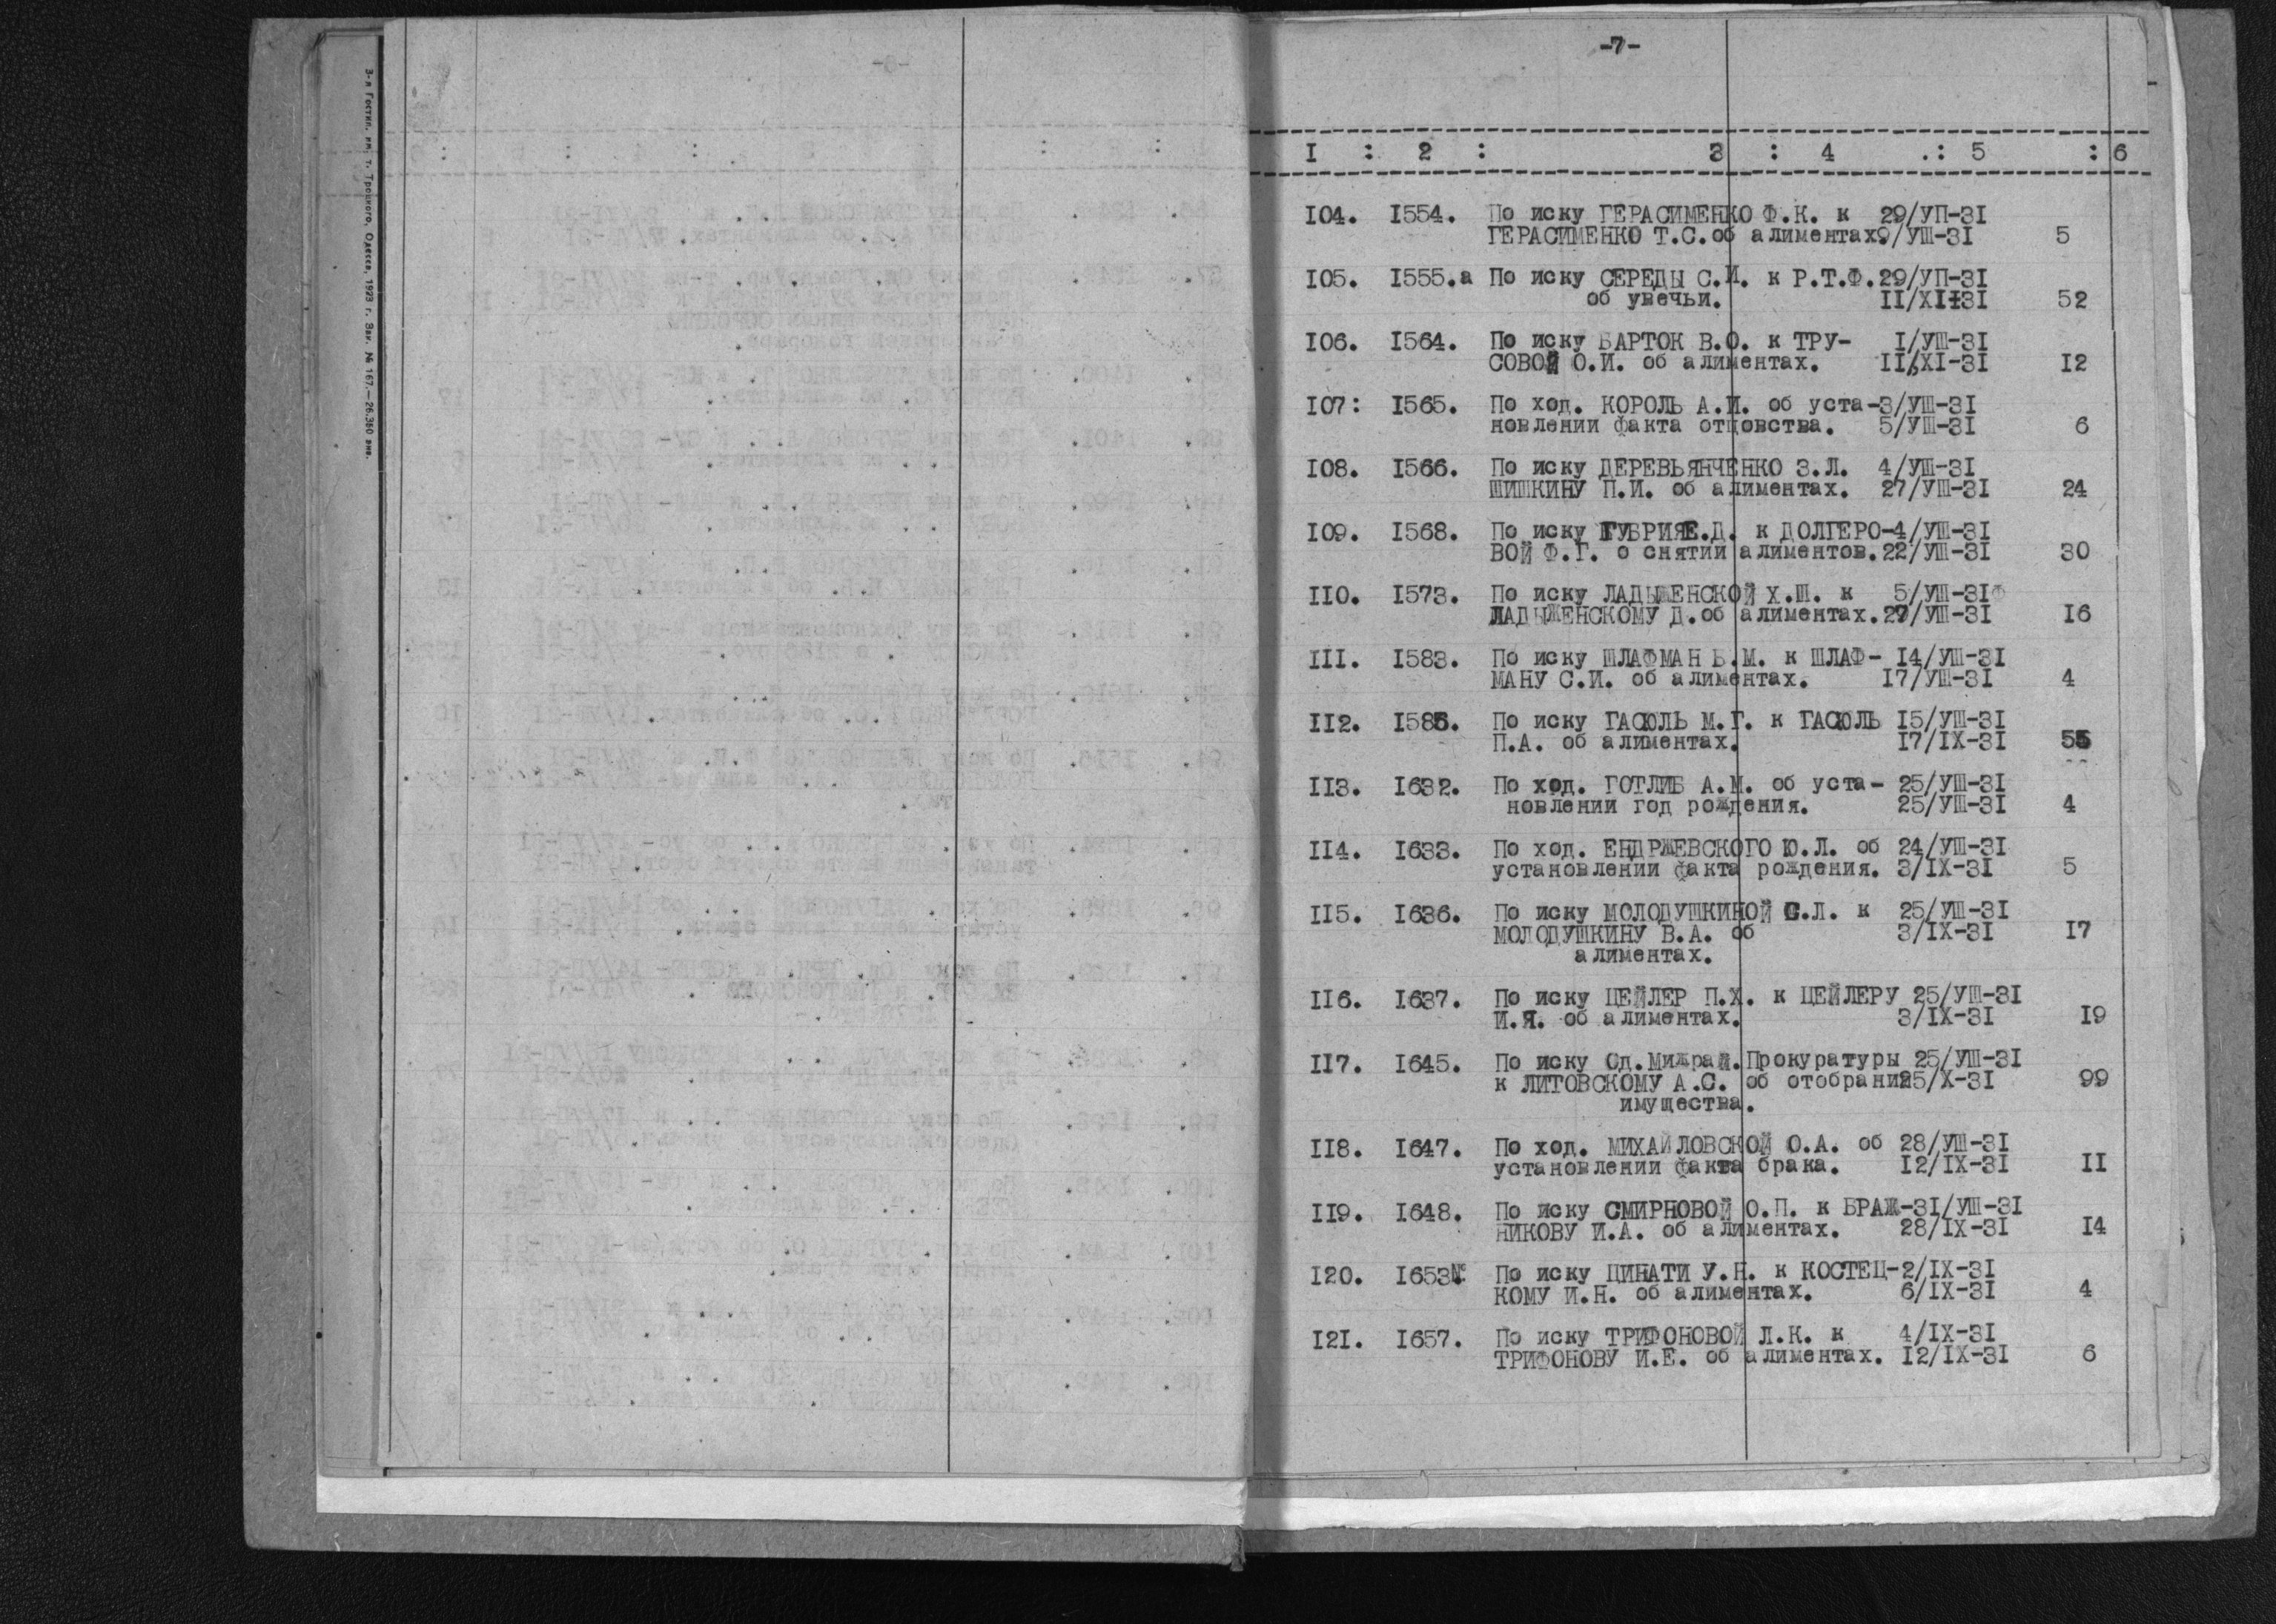 3-я Гостип. им. т. Троцкого. Одесса, 1923 г. Зак. № 167.—26.350 экз.
-7-
I : 2 : 3 : 4 .: 5 : 6
I04. I554. По иску ГЕРАСИМЕНКО Ф.К. к 29/УП-3I
ГЕРАСИМЕНКО Т.С.об алиментах.9/УШ-3I 5
I05. I555.а По иску СЕРЕДЫ С.И. к Р.Т.Ф.29/УП-3I
об увечьи. II/XII-3I 52
I06. I564. По иску БАРТОК В.О. к ТРУ- I/УШ-3I
СОВОЙ О.И. об алиментах. II/XI-3I I2
I07: I565. По ход. КОРОЛЬ А.И. об уста-3/УШ-3I
новлении факта отцовства. 5/УШ-3I 6
I08. I566. По иску ДЕРЕВЬЯНЧЕНКО З.Л. 4/УШ-3I
ШИШКИНУ П.И. об алиментах. 27/УШ-3I 24
I09. I568. По иску ГУБРИЯ Е.Д. к ДОЛГЕРО-4/УШ-3I
ВОЙ Ф.Г. о снятии алиментов.22/УШ-3I 30
II0. I573. По иску ЛАДЫЖЕНСКОЙ Х.Ш. к 5/УШ-3I
ЛАДЫЖЕНСКОМУ Д.об алиментах.29/УШ-3I I6
III. I583. По иску ШЛАФМАН Б.М. к ШЛАФ- I4/УШ-3I
МАНУ С.И. об алиментах. I7/УШ-3I 4
II2. I585. По иску ГАСЮЛЬ М.Г. к ГАСЮЛЬ I5/УШ-3I
П.А. об алиментах. I7/IX-3I 55
II3. I632. По ход. ГОТЛИБ А.М. об уста- 25/УШ-3I
новлении год рождения. 25/УШ-3I 4
II4. I633. По ход. ЕНДРЖЕВСКОГО Ю.Л. об 24/УШ-3I
установлении факта рождения. 3/IX-3I 5
II5. I636. По иску МОЛОДУШКИНОЙ С.Л. к 25/УШ-3I
МОЛОДУШКИНУ В.А. об 3/IX-3I I7
алиментах.
II6. I637. По иску ЦЕЙЛЕР П.Х. к ЦЕЙЛЕРУ 25/УШ-3I
И.Я. об алиментах. 3/IX-3I I9
II7. I645. По иску Од.Мижрай.Прокуратуры 25/УШ-3I
к ЛИТОВСКОМУ А.С. об отобрании25/X-3I 99
имущества.
II8. I647. По ход. МИХАЙЛОВСКОЙ О.А. об 28/УШ-3I
установлении факта брака. I2/IX-3I II
II9. I648. По иску СМИРНОВОЙ О.П. к БРАЖ-3I/УШ-3I
НИКОВУ И.А. об алиментах. 28/IX-3I I4
I20. I653. По иску ЦИНАТИ У.Н. к КОСТЕЦ-2/IX-3I
КОМУ И.Н. об алиментах. 6/IX-3I 4
I2I. I657. По иску ТРИФОНОВОЙ Л.К. к 4/IX-3I
ТРИФОНОВУ И.Е. об алиментах. I2/IX-3I 6